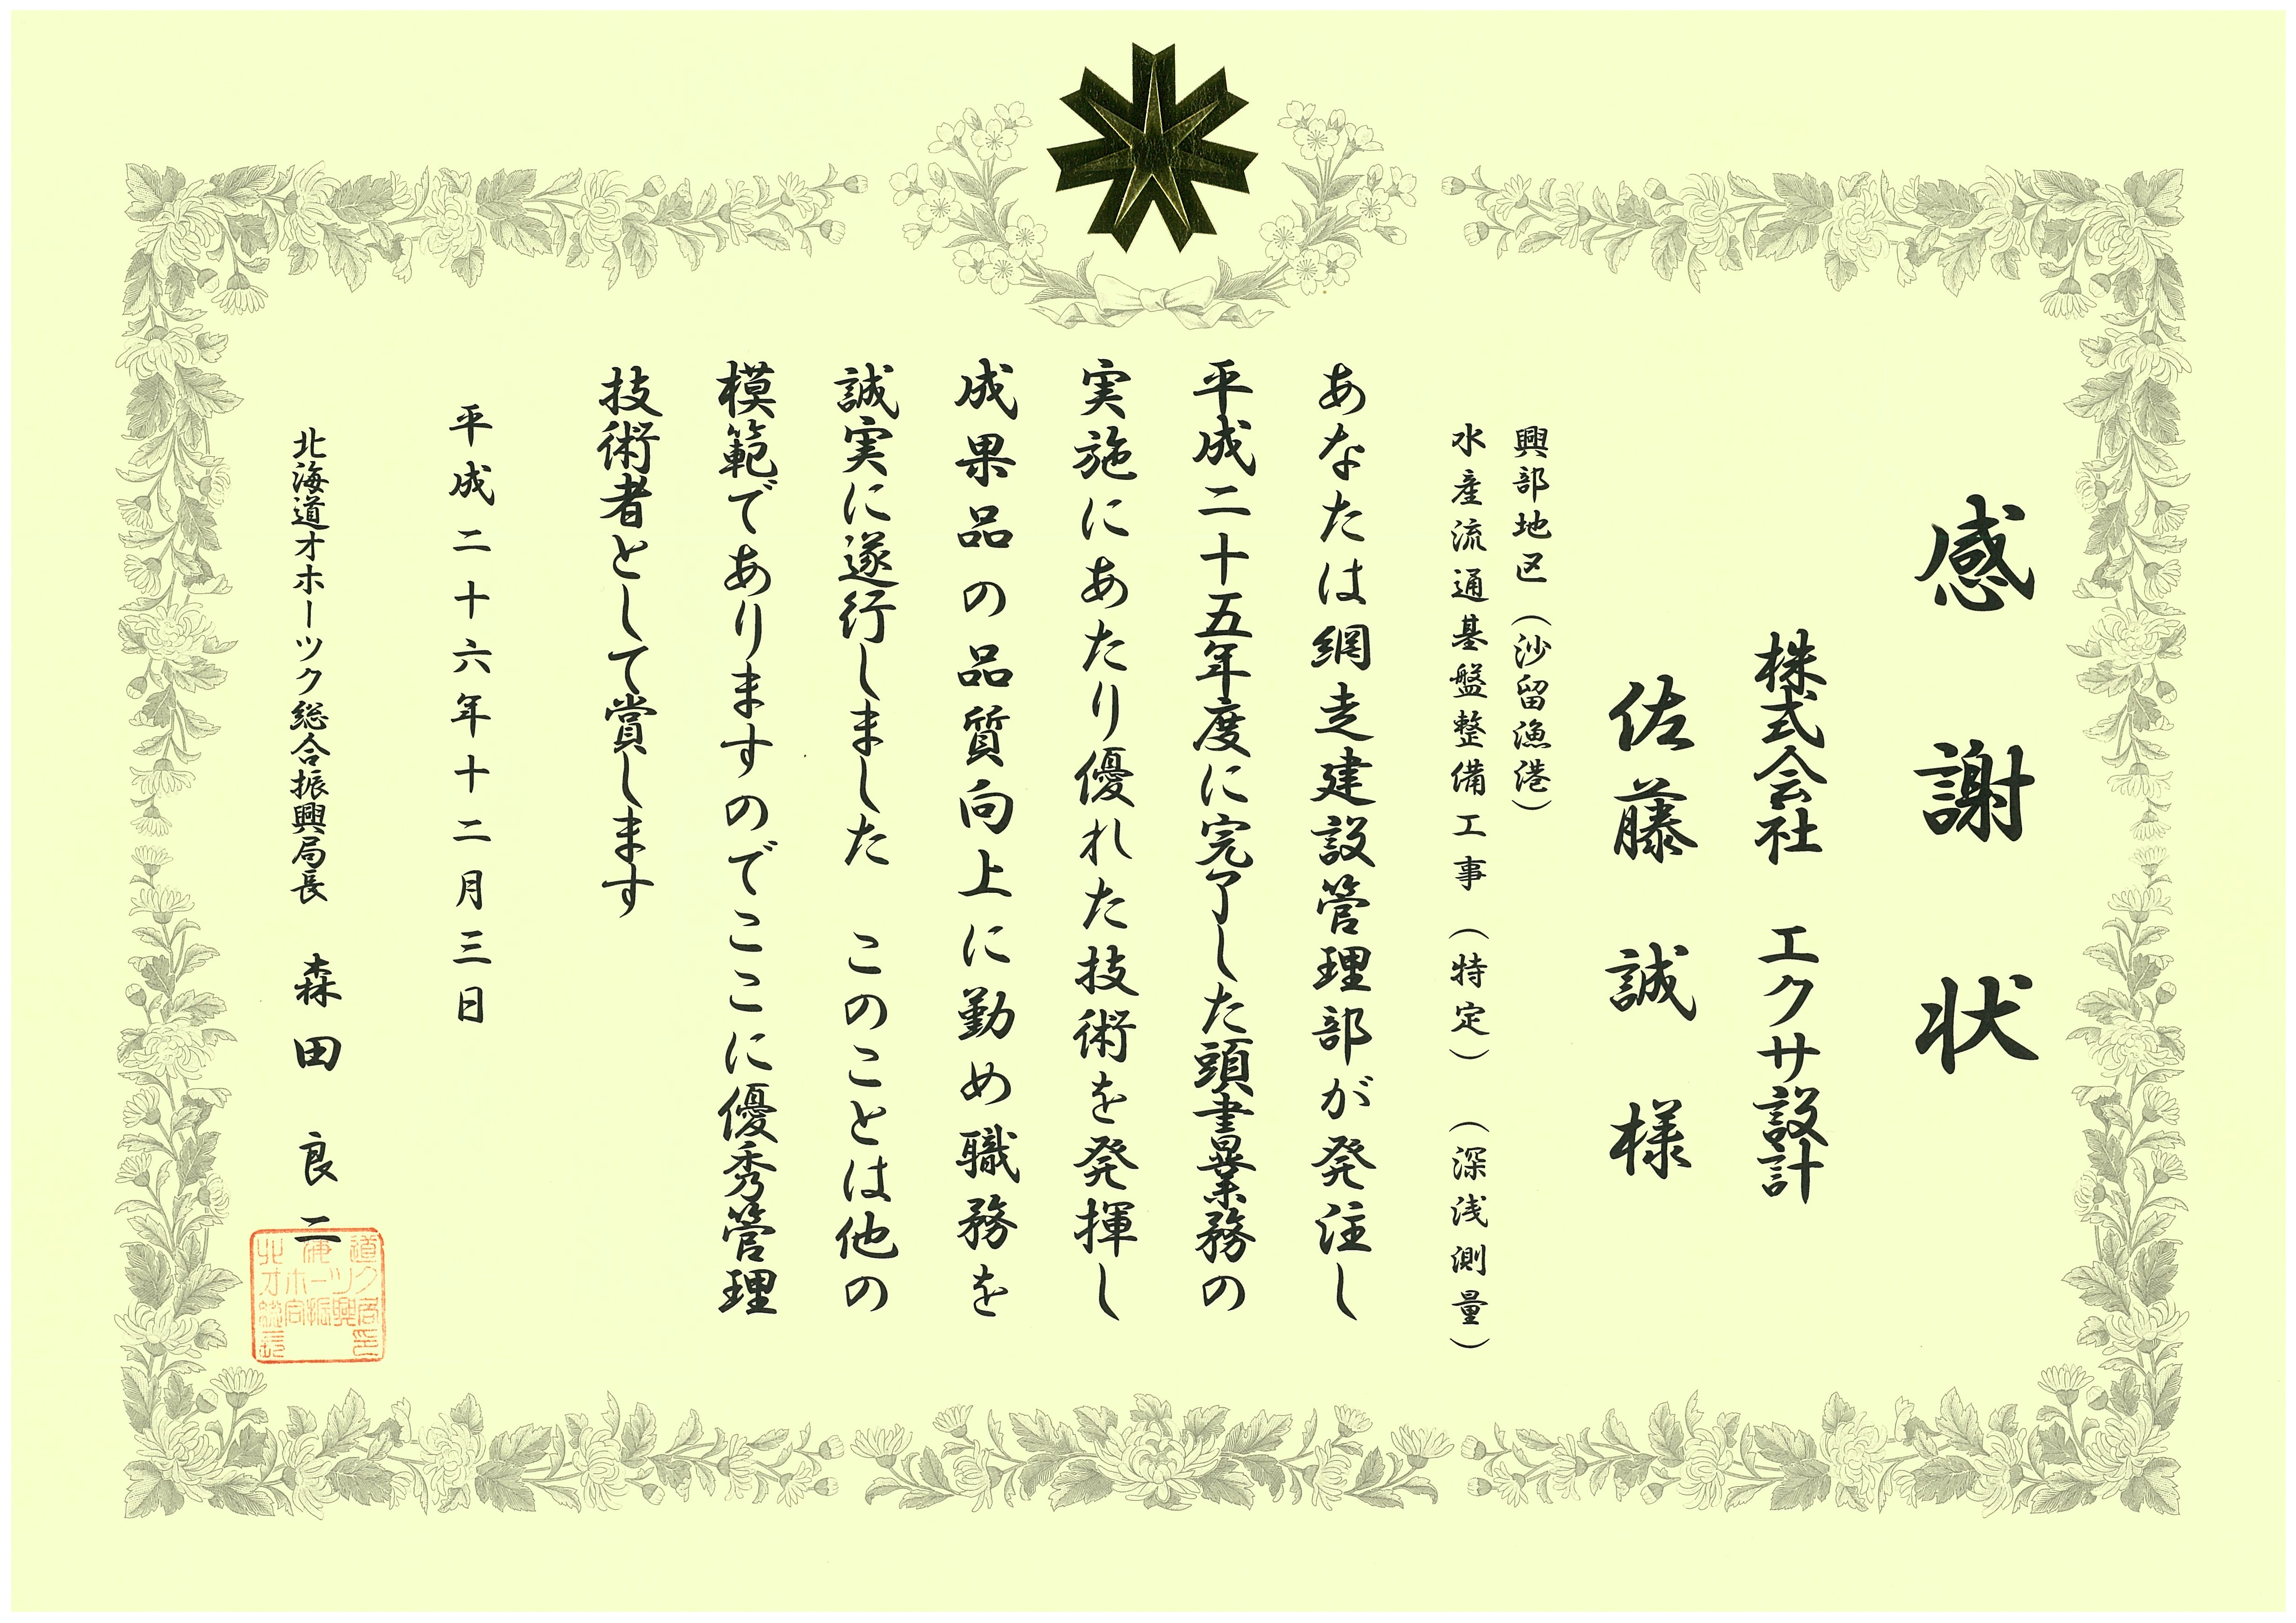 感謝状
株式会社 エクサ設計
佐藤 誠 様
興部地区（沙留漁港）
水産流通基盤整備工事（特定）（深浅測量）
あなたは網走建設管理部が発注し
平成二十五年度に完了した頭書業務の
実施にあたり優れた技術を発揮し
成果品の品質向上に勤め職務を
誠実に遂行しました このことは他の
模範でありますのでここに優秀管理
技術者として賞します
平成二十六年十二月三日
北海道オホーツク総合振興局長 森田良二